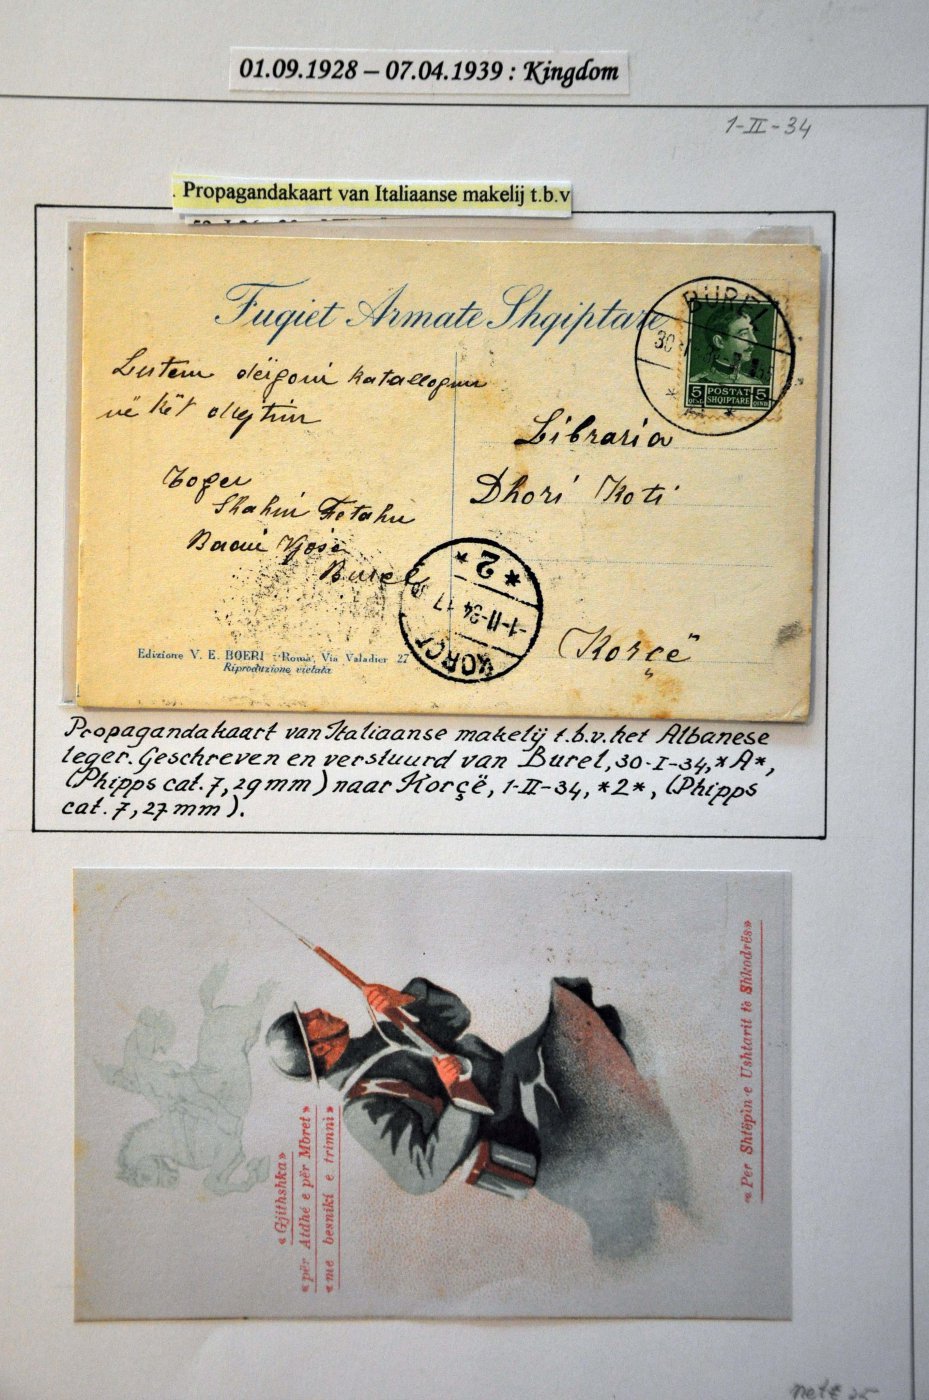 01.09.1928 – 07.04.1939 : Kingdom
1-II-34
. Propagandakaart van Italiaanse makelij t.b.v
Fuqiet Armate Shqiptare
BUREL
30
5 POSTAT 5
QIND. SHQIPTARE QIND.
Lutem dërgoni katallogun
në kët drejtim
Shahin Fetahu
Burel
Libraria
Dhori Koti
Korçë
*2*
-1-II-34 17
KORÇË
Edizione V. E. BOERI - Roma, Via Valadier 27
Riproduzione vietata
Propagandakaart van Italiaanse makelij t.b.v. het Albanese
leger. Geschreven en verstuurd van Burel, 30-I-34, *A*,
(Phipps cat. 7, 29 mm) naar Korçë, 1-II-34, *2*, (Phipps
cat. 7, 27 mm).
«Gjithshka»
«për Atdhé e për Mbret»
«me besnikí e trimnì»
«Per Shtëpin-e Ushtarit të Shkodrës»